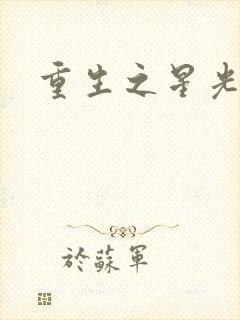 重生之星光
於蘇軍